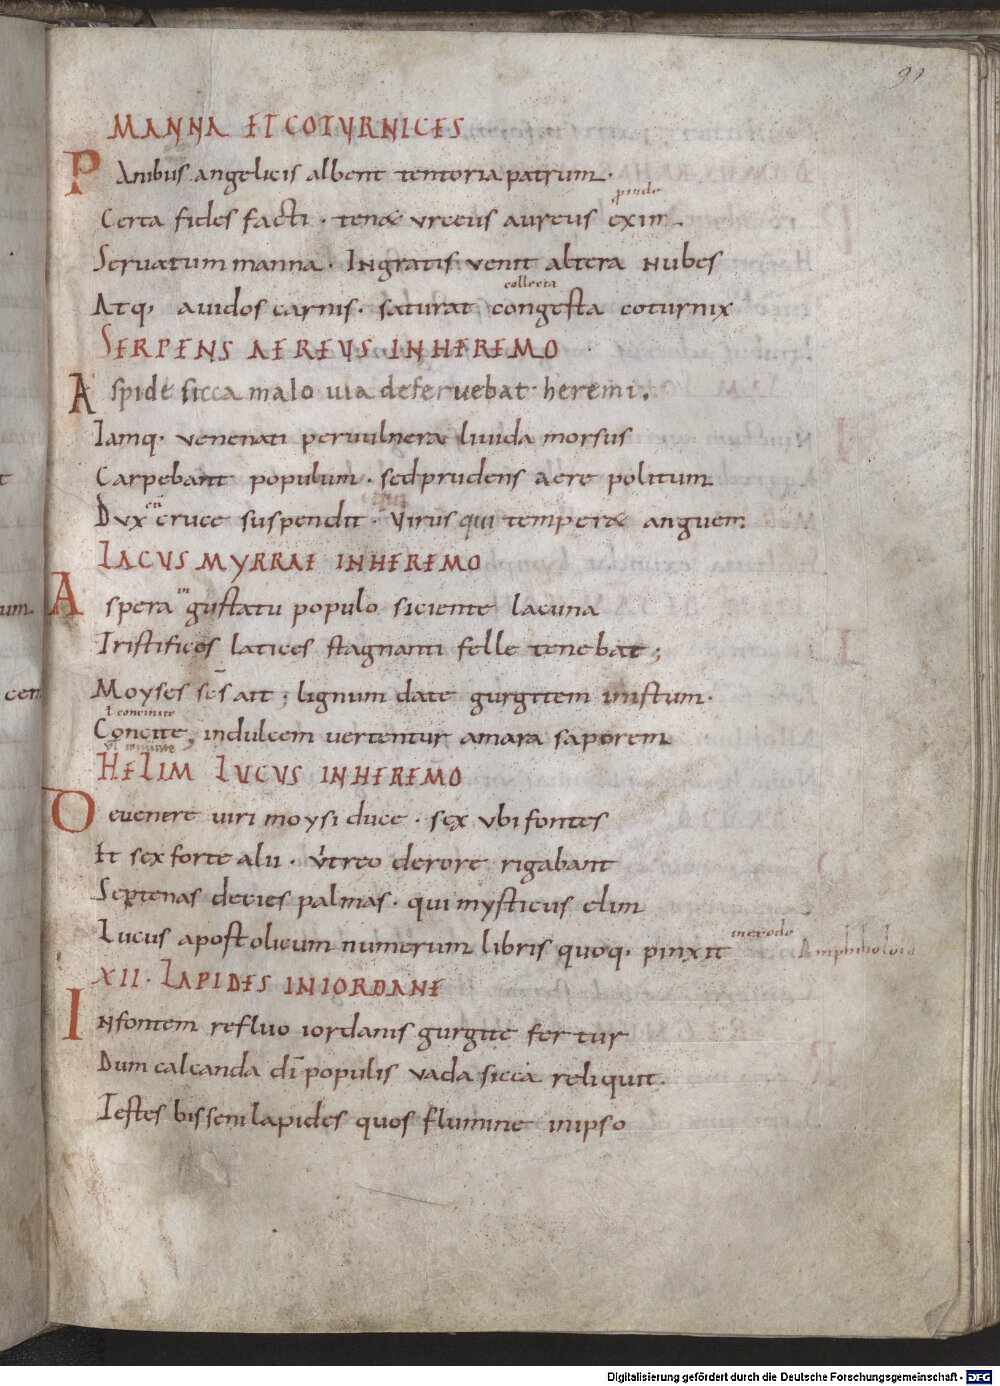 99
MANNA ET COTURNICES
PAnibus angelicis albent tentoria patrum.
proinde
Certa fides facti. tenæ urceus aureus exim
Servatum manna. INgratis venit altera Nubes
collecta
Atq; auidos carnis. saturat congesta coturnix
SERPENS AEREUS INHEREMO
Aspide sicca malo uia deferuebat heremi.
Iamq. venenati pervulnera liuida morsus
Carpebant populum. sed prudens aere politum
Dux cruce suspendit. Virus qui temperæ anguem
LACUS MYRRAE INHEREMO
Aspera gustatu populo siciente lacuna
Tristificos latices stagnanti felle tenebat;
Moyses scs ait; lignum date gurgitem iniustum.
ł concinite
Concite, indulcem uertentur amara saporem
HELIM LUCUS INHEREMO
Deuenere uiri moysi duce. sex ubi fontes
Et sex forte alii. vitreo derore rigabant
Septenas decies palmas. qui mysticus elim
inerodo
Lucus apostolicum numerum libris quoq, pinxit Amphiboloia
XII. LAPIDES INIORDANE
INfontem refluo iordanis gurgite fertur
Dum calcanda di populis vada sicca reliquit.
Testes bisseni lapides quos flumine inipso
Digitalisierung gefördert durch die Deutsche Forschungsgemeinschaft - DFG